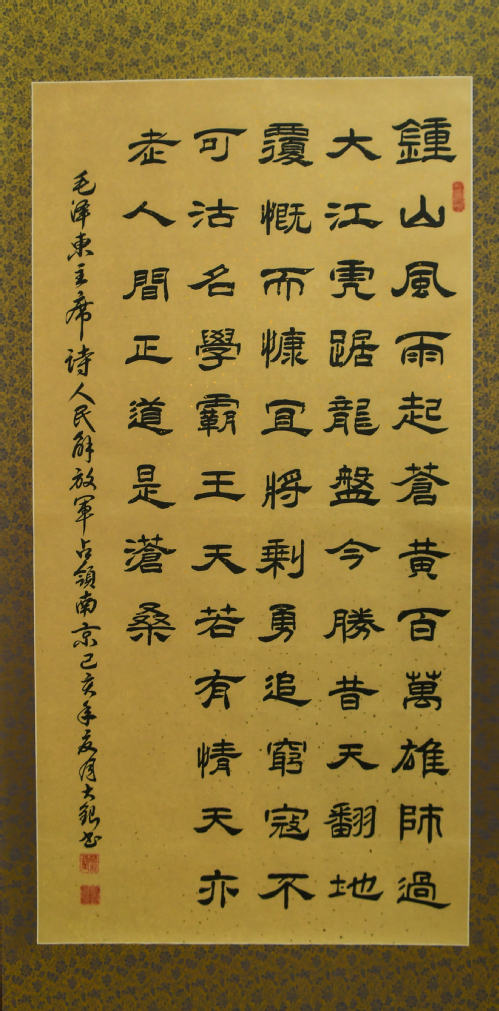 鍾山風雨起蒼黃百萬雄師過
大江虎踞龍盤今勝昔天翻地
覆慨而慷宜將剩勇追窮寇不
可沽名學霸王天若有情天亦
老人間正道是滄桑
毛泽東主席诗人民解放軍占領南京己亥年夏月大书